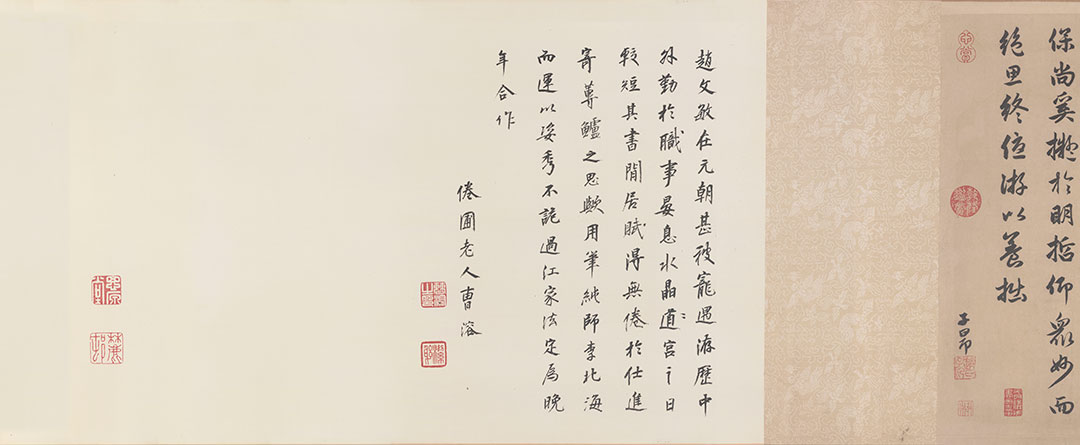 保尚奚擬於明哲仰衆妙而
絕思終優游以養拙
子昂
趙文敏在元朝甚被寵遇游歷中
外勤於職事晏息水晶道宮之日
較短其書閒居賦得無倦於仕進
寄蓴鱸之思歟用筆純師李北海
而運以姿秀不詭過江家法定為晚
年合作
倦圃老人曹溶